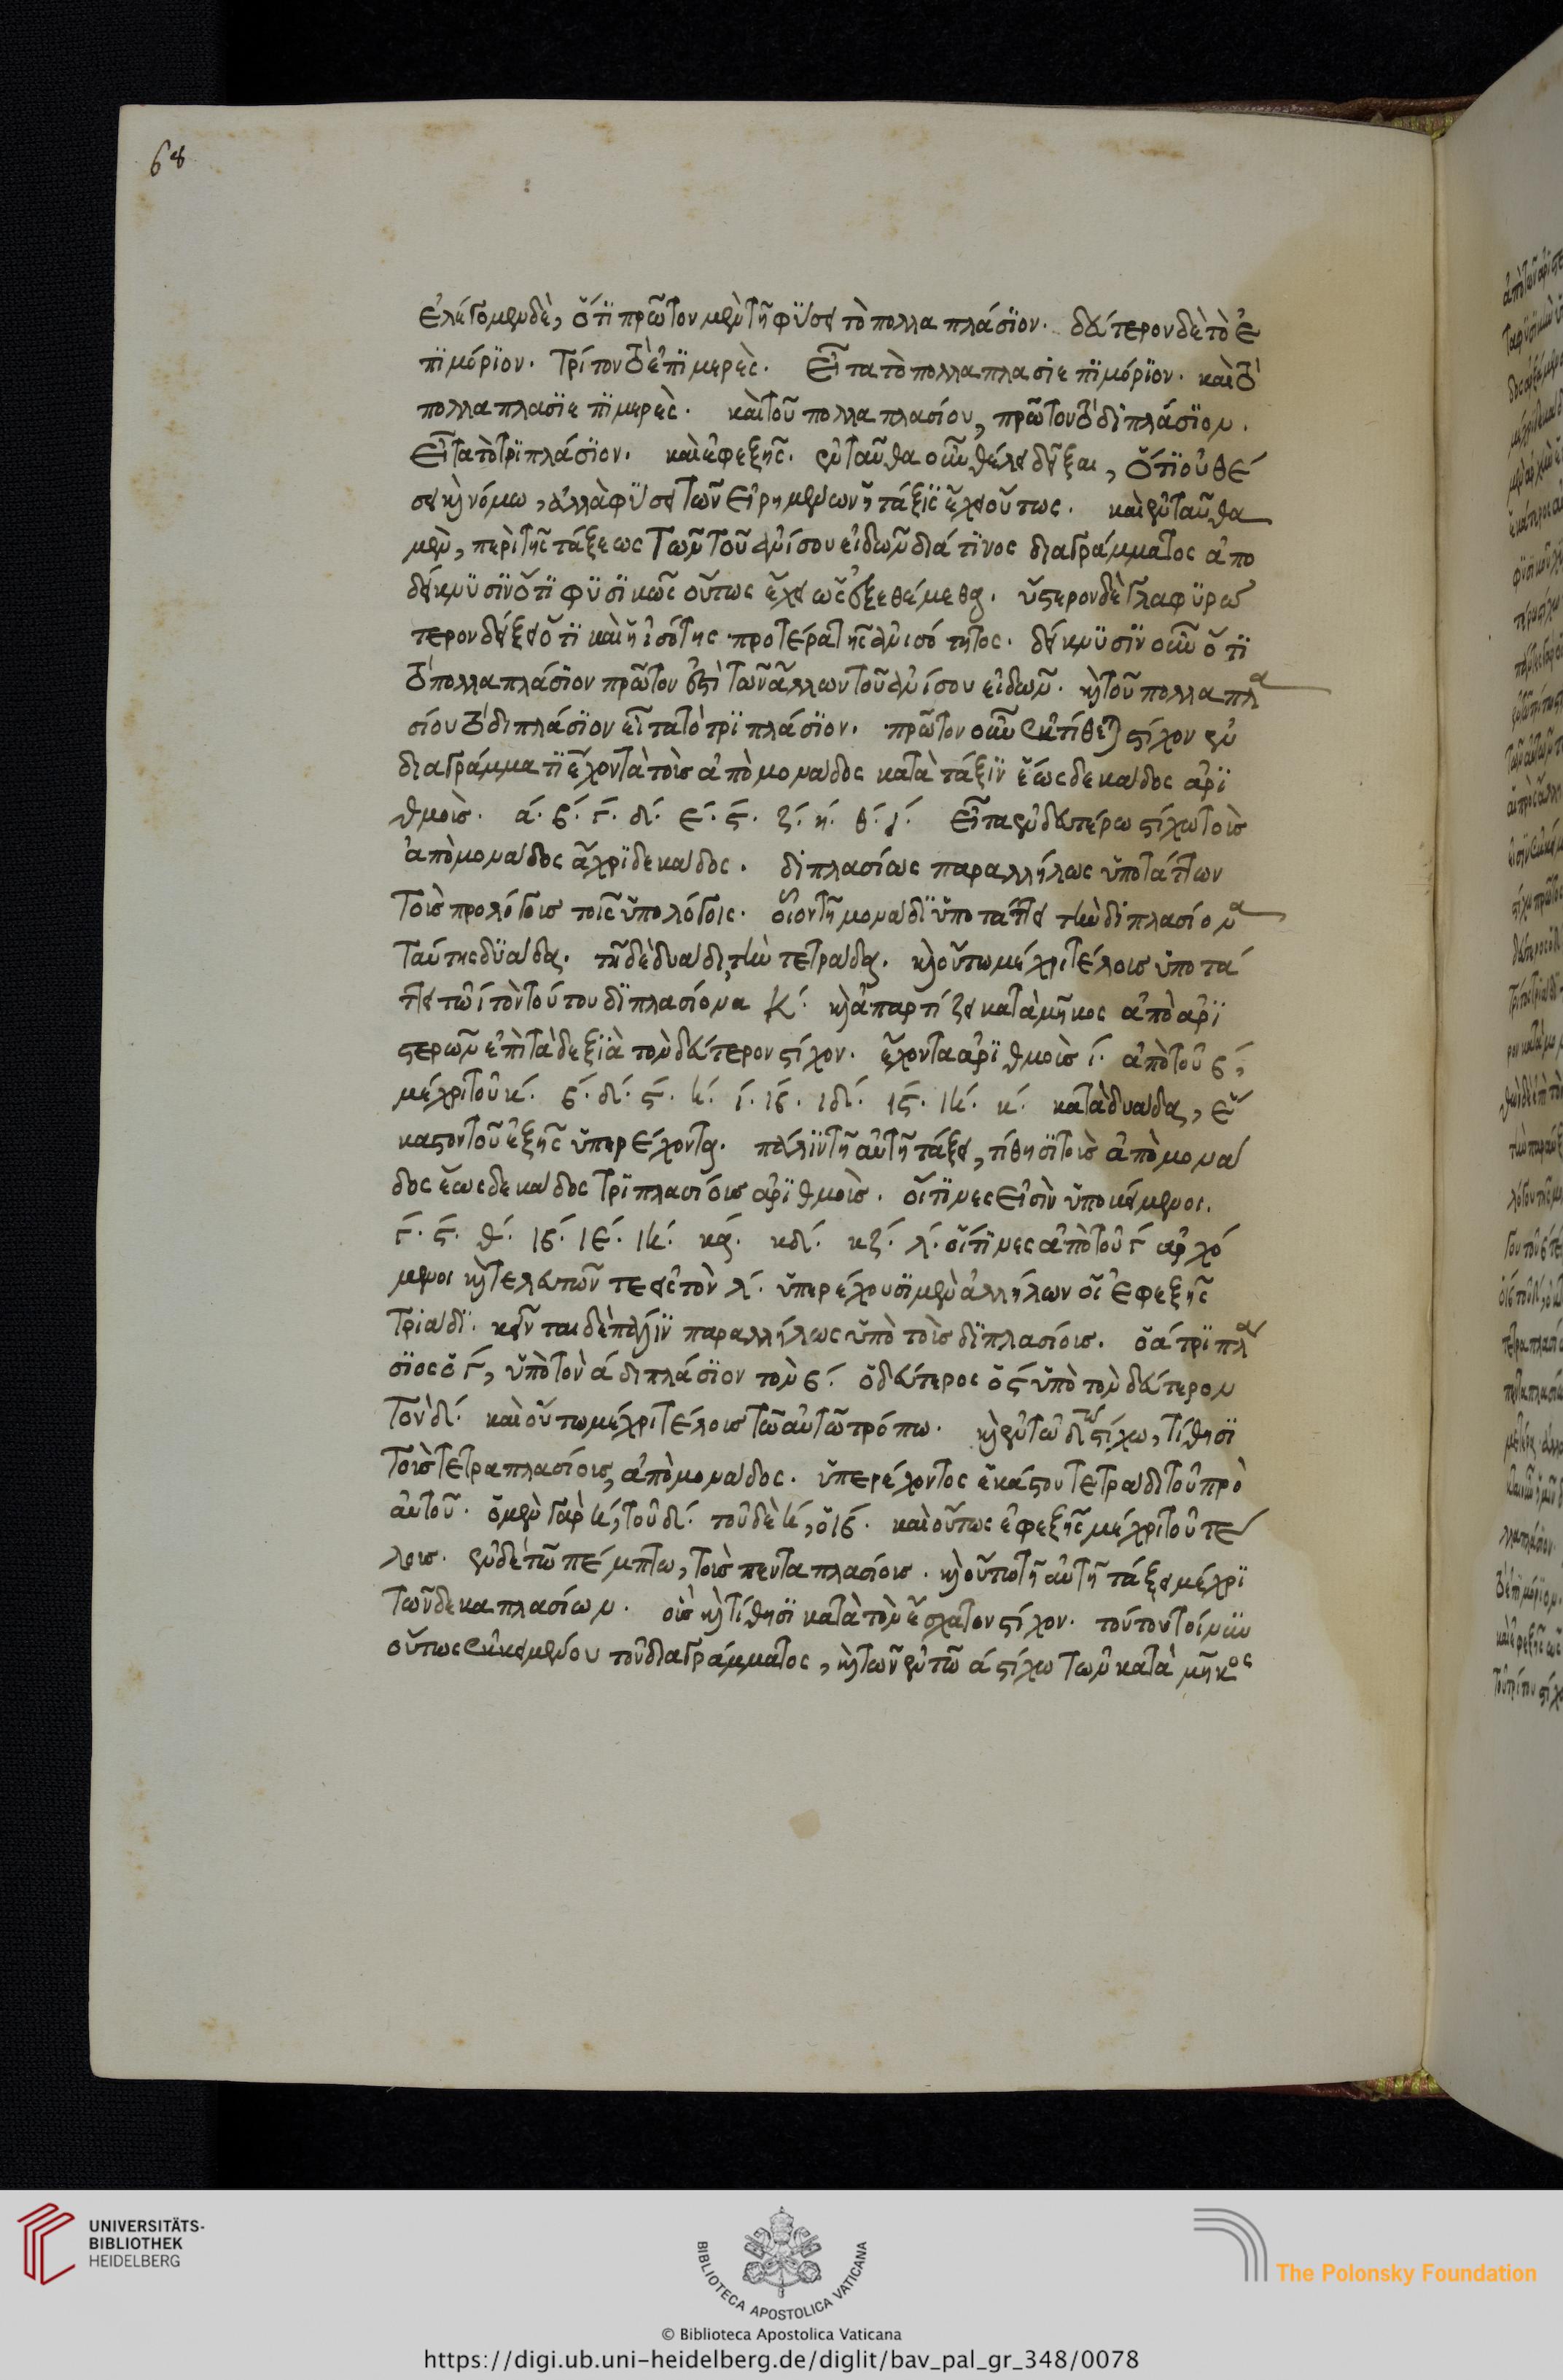 68
ἐλέγομεν δὲ, ὅτι πρῶτον μὲν τῆ φύσει τὸ πολλαπλάσιον. δεύτερον δὲ τὸ ἐ
πιμόριον. τρίτον τὸ ἐπιμερὲς. εἶτα τὸ πολλαπλασιεπιμόριον. καὶ τὸ
πολλαπλασιεπιμερὲς. καὶ τοῦ πολλαπλασίου, πρῶτον τὸ διπλάσιον.
εἶτα τὸ τριπλάσιον. καὶ ἐφεξῆς. ἐνταῦθα οὖν θέλει δεῖξαι, ὅτι οὐ θέ
σει κỳ νόμω, ἀλλὰ φύσει τῶν εἰρημένων ἡ τάξις ἔχει οὕτως. καὶ ἐνταῦθα
μὲν, περὶ τῆς τάξεως τῶν τοῦ ἀνίσου εἰδῶν διά τινος διαγράμματος ἀπο
δείκνυσιν ὅτι φυσικῶς οὕτως ἔχει ὡς ἐξεθέμεθα. ὕστερον δὲ γλαφυρώ
τερον δείξει ὅτι καὶ ἡ ἰσότης προτέρα τῆς ἀνισότητος. δείκνυσιν οὖν ὅτι
τὸ πολλαπλάσιον πρῶτον ἐστὶ τῶν ἄλλων τοῦ ἀνίσου εἰδῶν. καὶ τοῦ πολλαπλα
σίου τὸ διπλάσιον εἶτα τὸ τριπλάσιον. πρῶτον οὖν ἐκτίθεται στίχον ἐν
διαγράμματι ἔχοντα τοὺς ἀπὸ μονάδος κατὰ τάξιν ἕως δεκάδος ἀρι
θμοὺς. ά. β́. γ́. δ́. έ. ϛ́. ζ́. ή. θ́. ί. εἶτα ἐν δευτέρω στίχω τοὺς
ἀπὸ μονάδος ἄχρι δεκάδος. διπλασίως παραλλήλως ὑποτάττων
τοὺς προλόγους τοῖς ὑπολόγοις. οἷον τῆ μονάδι ὑποτάττει τὴν διπλασίονα
ταύτης δυάδα. τῆ δὲ δυάδι, τὴν τετράδα. καὶ οὕτω μέχρι τέλους ὑποτά
ττει τῶ ί τὸν τούτου διπλασίονα κ́. καὶ ἀπαρτίζει κατὰ μῆκος ἀπὸ ἀρι
στερῶν ἐπὶ τὰ δεξιὰ τὸν δεύτερον στίχον. ἔχοντα ἀριθμοὺς ί. ἀπὸ τοῦ β́,
μέχρι τοῦ κ́. β́. δ́. ϛ́. ή. ί. ιβ́. ιδ́. ιϛ́. ιή. κ́. κατὰ δυάδα, ἕ
καστον τοῦ ἑξῆς ὑπερέχοντα. πάλιν τῆ αὐτῆ τάξει, τίθησι τοὺς ἀπὸ μονά
δος ἕως δεκάδος τριπλασίους ἀριθμοὺς. οἵτινες εἰσὶν ὑποκείμενοι.
γ́. ϛ́. θ́. ιβ́. ιέ. ιή. κά. κδ́. κζ́. λ́. οἵτινες ἀπὸ τοῦ γ́ ἀρχό
μενοι καὶ τελευτῶντες εἰς τὸν λ́. ὑπερέχουσι μὲν ἀλλήλων οἱ ἐφεξῆς
τριάδι. κεῖνται δὲ πάλιν παραλλήλως ὑπὸ τοὺς διπλασίους. ὁ ά τριπλά
σιος ὁ γ́, ὑπὸ τὸν ά διπλάσιον τὸν β́. ὁ δεύτερος ὁ ϛ́ ὑπὸ τὸν δεύτερον
τὸν δ́. καὶ οὕτω μέχρι τέλους τῶ αὐτῶ τρόπω. καὶ ἐν τῶ δ́τω στίχω, τίθησι
τοὺς τετραπλασίους, ἀπὸ μονάδος. ὑπερέχοντος ἑκάστου τετράδι τοῦ πρὸ
αὐτοῦ. ὁ μὲν γὰρ ή, τοῦ δ́. τοῦ δὲ ή, ὁ ιβ́. καὶ οὕτως ἐφεξῆς μέχρι τοῦ τέ
λους. ἐν δὲ τῶ πέμπτω, τοὺς πενταπλασίους. καὶ οὕτω τῆ αὐτῆ τάξει μέχρι
τῶν δεκαπλασίων. οὓς καὶ τίθησι κατὰ τὸν ἔσχατον στίχον. τούτου τοίνυν
οὕτως ἐκκειμένου τοῦ διαγράμματος, καὶ τῶν ἐν τῶ ά στίχω τῶν κατὰ μῆκος
UNIVERSITÄTS-
BIBLIOTHEK
HEIDELBERG
BIBLIOTECA APOSTOLICA VATICANA
The Polonsky Foundation
© Biblioteca Apostolica Vaticana
https://digi.ub.uni-heidelberg.de/diglit/bav_pal_gr_348/0078